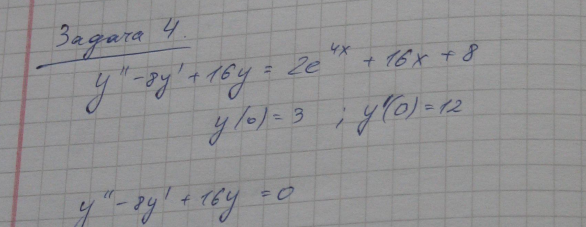 Задача 4.
y'' - 8y' + 16y = 2e^{4x} + 16x + 8
y(0) = 3 ; y'(0) = 12
y'' - 8y' + 16y = 0